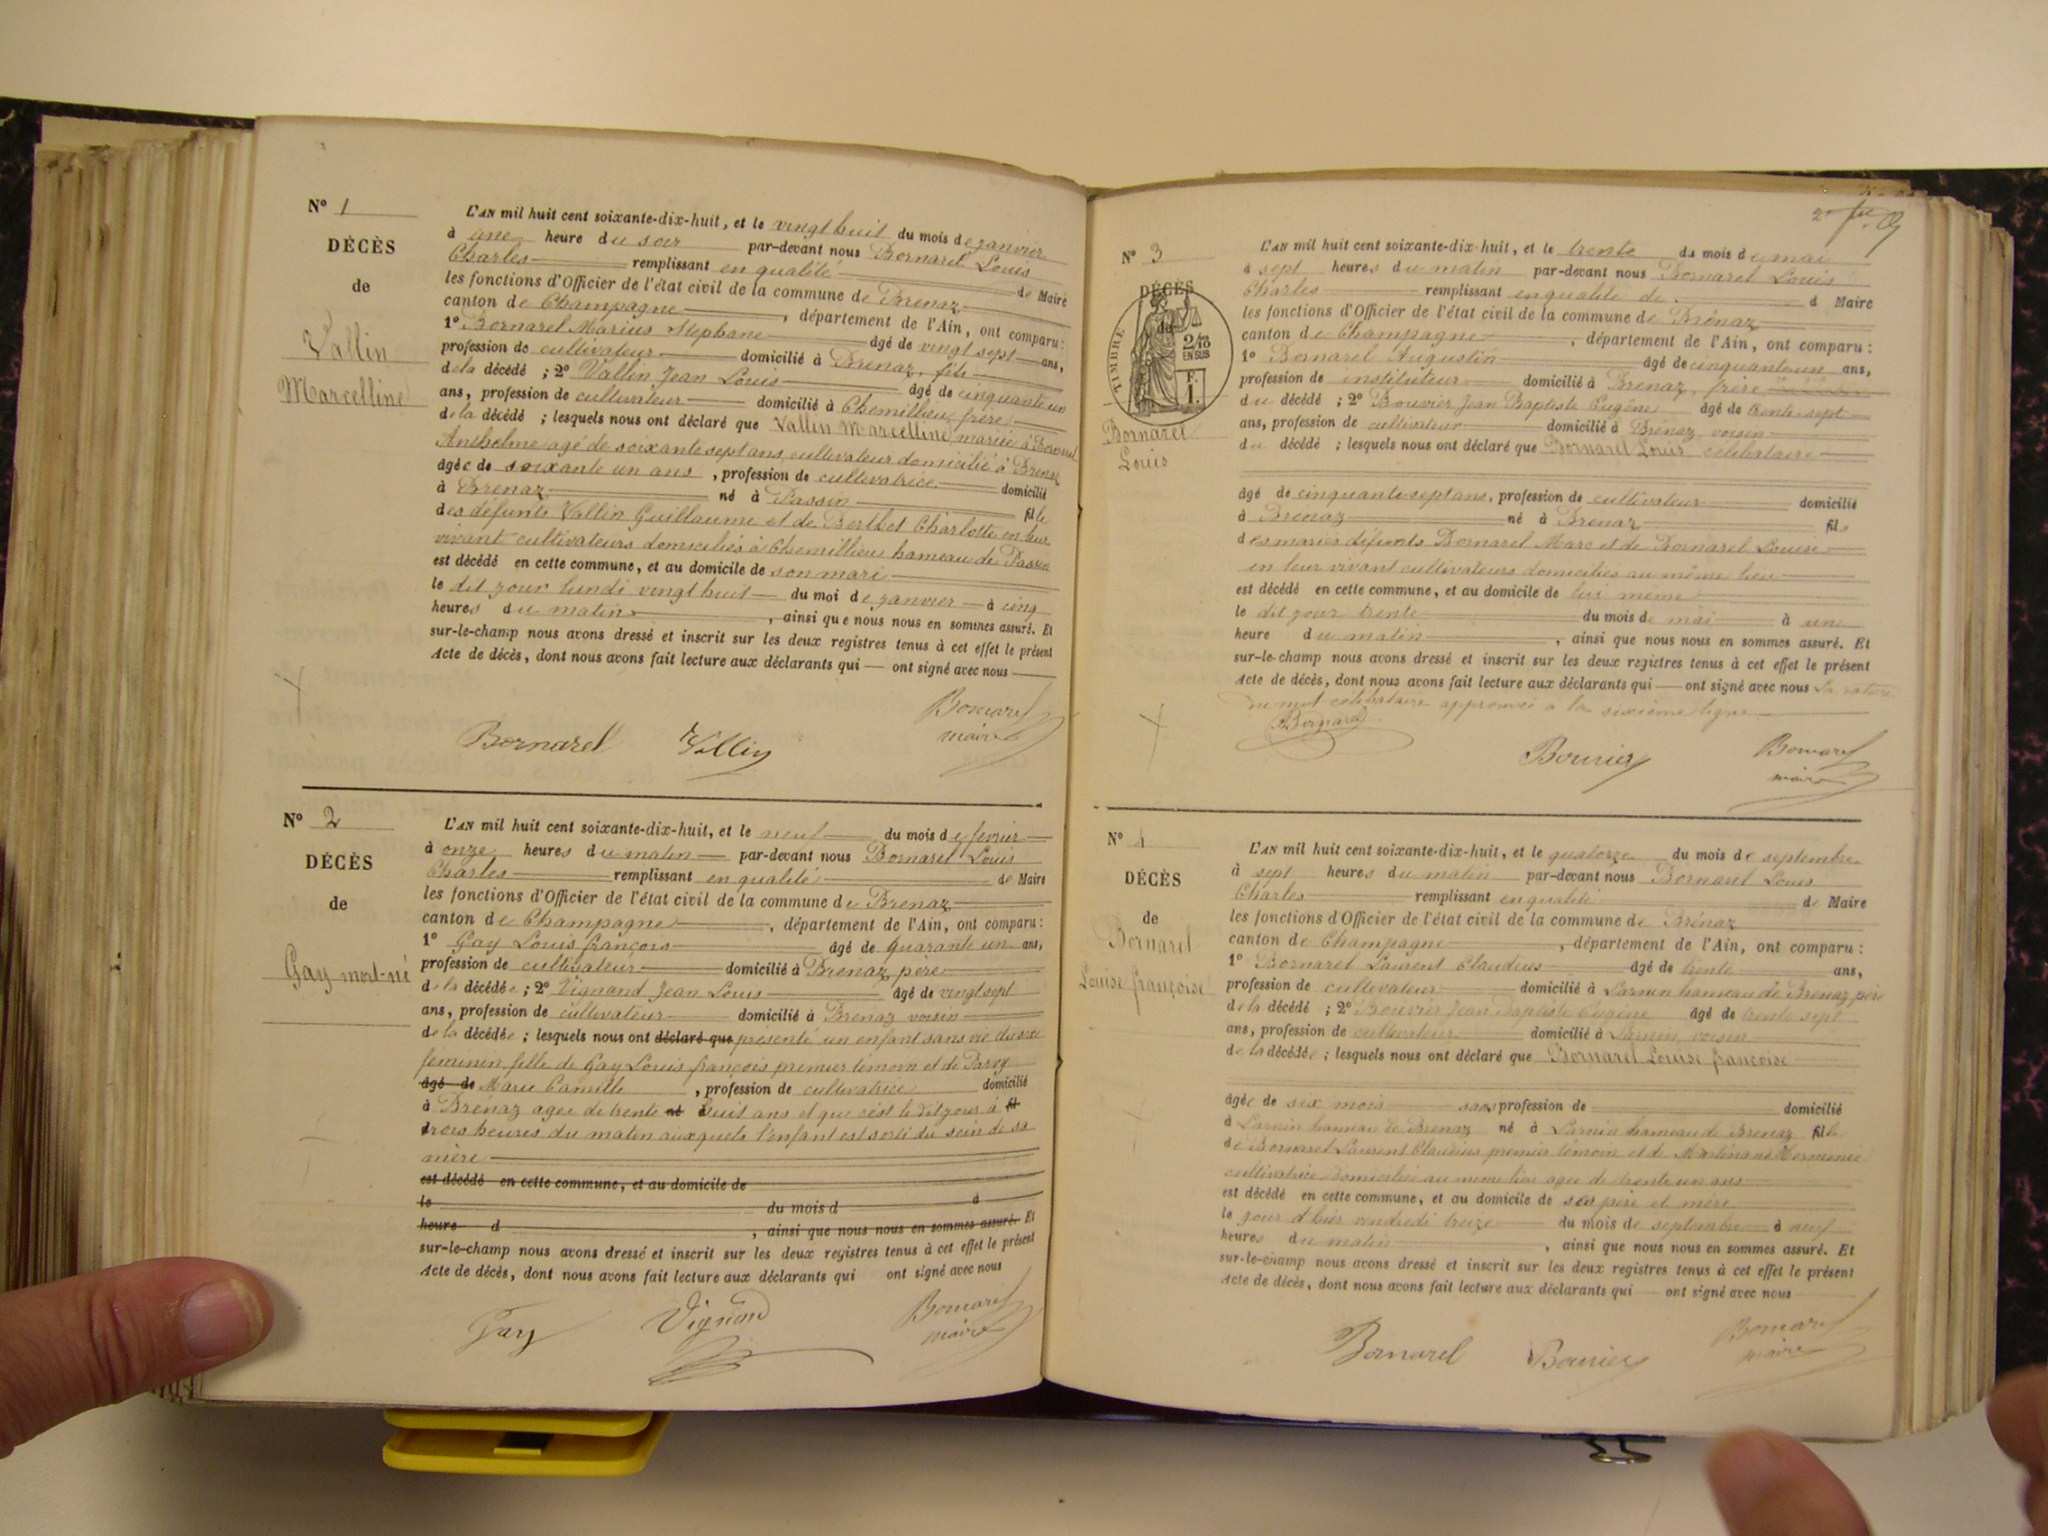 N° 1
DÉCÈS
de
Vallin
Marcelline
L'AN mil huit cent soixante-dix-huit, et le vingt huit du mois de janvier
à une heure du soir par-devant nous Bornarel Louis
Charles remplissant en qualité de Maire
les fonctions d'Officier de l'état civil de la commune de Brenaz
canton de Champagne, département de l'Ain, ont comparu :
1° Bornarel Marius Stephane âgé de vingt sept ans,
profession de cultivateur domicilié à Brenaz, fils
de la décédé ; 2° Vallin Jean Louis âgé de cinquante un
ans, profession de cultivateur domicilié à Chemillieu frère
de la décédé ; lesquels nous ont déclaré que Vallin Marcelline mariée à Bornarel
Anthelme agé de soixante sept ans cultivateur domicilié à Brenaz
âgée de soixante un ans, profession de cultivatrice domicilié
à Brenaz né à Passin fille
des défunts Vallin Guillaume et de Berthet Charlotte en leur
vivant cultivateurs domiciliés à Chemillieu hameau de Passin
est décédé en cette commune, et au domicile de son mari
le dit jour lundi vingt huit du moi de janvier à cinq
heures du matin, ainsi que nous nous en sommes assuré. Et
sur-le-champ nous avons dressé et inscrit sur les deux registres tenus à cet effet le présent
Acte de décès, dont nous avons fait lecture aux déclarants qui — ont signé avec nous
Bornarel Vallin Bornarel
maire
N° 2
DÉCÈS
de
Gay mort-né
L'AN mil huit cent soixante-dix-huit, et le neuf du mois de fevrier
à onze heures du matin par-devant nous Bornarel Louis
Charles remplissant en qualité de Maire
les fonctions d'Officier de l'état civil de la commune de Brenaz
canton de Champagne, département de l'Ain, ont comparu :
1° Gay Louis françois âgé de quarante un ans,
profession de cultivateur domicilié à Brenaz père
de la décédée ; 2° Vignand Jean Louis âgé de vingt sept
ans, profession de cultivateur domicilié à Brenaz voisin
de la décédée ; lesquels nous ont déclaré que présenté un enfant sans vie du sexe
féminin fille de Gay Louis françois premier témoin et de
âgé de Marie Camille, profession de cultivatrice domicilié
à Brénaz agée de trente né à huit ans et que c'est le dit jour à fil
trois heures du matin auxquels l'enfant est sorti du sein de sa
mère
est décédé en cette commune, et au domicile de
le du mois d à
heure d, ainsi que nous nous en sommes assuré. Et
sur-le-champ nous avons dressé et inscrit sur les deux registres tenus à cet effet le présent
Acte de décès, dont nous avons fait lecture aux déclarants qui ont signé avec nous
Gay Vignand Bornarel
maire
2e
N° 3
DÉCÈS
de
TIMBRE
2/10
EN SUS
F.
1.
Bornarel
Louis
L'AN mil huit cent soixante-dix-huit, et le trente du mois de mai
à sept heures du matin par-devant nous Bornarel Louis
Charles remplissant en qualité de d Maire
les fonctions d'Officier de l'état civil de la commune de Brénaz
canton de Champagne, département de l'Ain, ont comparu :
1° Bornarel Augustin âgé de cinquante un ans,
profession de instituteur domicilié à Brenaz, frère
du décédé ; 2° Bouvier Jean Baptiste Eugène âgé de trente sept
ans, profession de cultivateur domicilié à Brenaz voisin
du décédé ; lesquels nous ont déclaré que Bornarel Louis célibataire
âgé de cinquante sept ans, profession de cultivateur domicilié
à Brenaz né à Brenaz fils
des mariés défunts Bornarel Marc et de Bornarel Louise
en leur vivant cultivateurs domiciliés au même lieu
est décédé en cette commune, et au domicile de lui même
le dit jour trente du mois de mai à une
heure du matin, ainsi que nous nous en sommes assuré. Et
sur-le-champ nous avons dressé et inscrit sur les deux registres tenus à cet effet le présent
Acte de décès, dont nous avons fait lecture aux déclarants qui — ont signé avec nous La rature
du mot célibataire approuvé à la sixième ligne
Bornarel Bouvier Bornarel
maire
N° 4
DÉCÈS
de
Bornarel
Louise françoise
L'AN mil huit cent soixante-dix-huit, et le quatorze du mois de septembre
à sept heures du matin par-devant nous Bornarel Louis
Charles remplissant en qualité de Maire
les fonctions d'Officier de l'état civil de la commune de Brénaz
canton de Champagne, département de l'Ain, ont comparu :
1° Bornarel Laurent Claudius âgé de trente ans,
profession de cultivateur domicilié à Larnin hameau de Brenaz, père
de la décédé ; 2° Bouvier Jean Baptiste Eugène âgé de trente sept
ans, profession de cultivateur domicilié à Larnin, voisin
de la décédée ; lesquels nous ont déclaré que Bornarel Louise françoise
âgée de six mois sans profession de domicilié
à Larnin hameau de Brenaz né à Larnin hameau de Brenaz fille
de Bornarel Laurent Claudius premier témoin et de
cultivatrice domiciliée au même lieu agée de trente un ans
est décédé en cette commune, et au domicile de ses père et mère
le jour d'hier vendredi treize du mois de septembre à neuf
heures du matin, ainsi que nous nous en sommes assuré. Et
sur-le-champ nous avons dressé et inscrit sur les deux registres tenus à cet effet le présent
Acte de décès, dont nous avons fait lecture aux déclarants qui — ont signé avec nous
Bornarel Bouvier Bornarel
maire